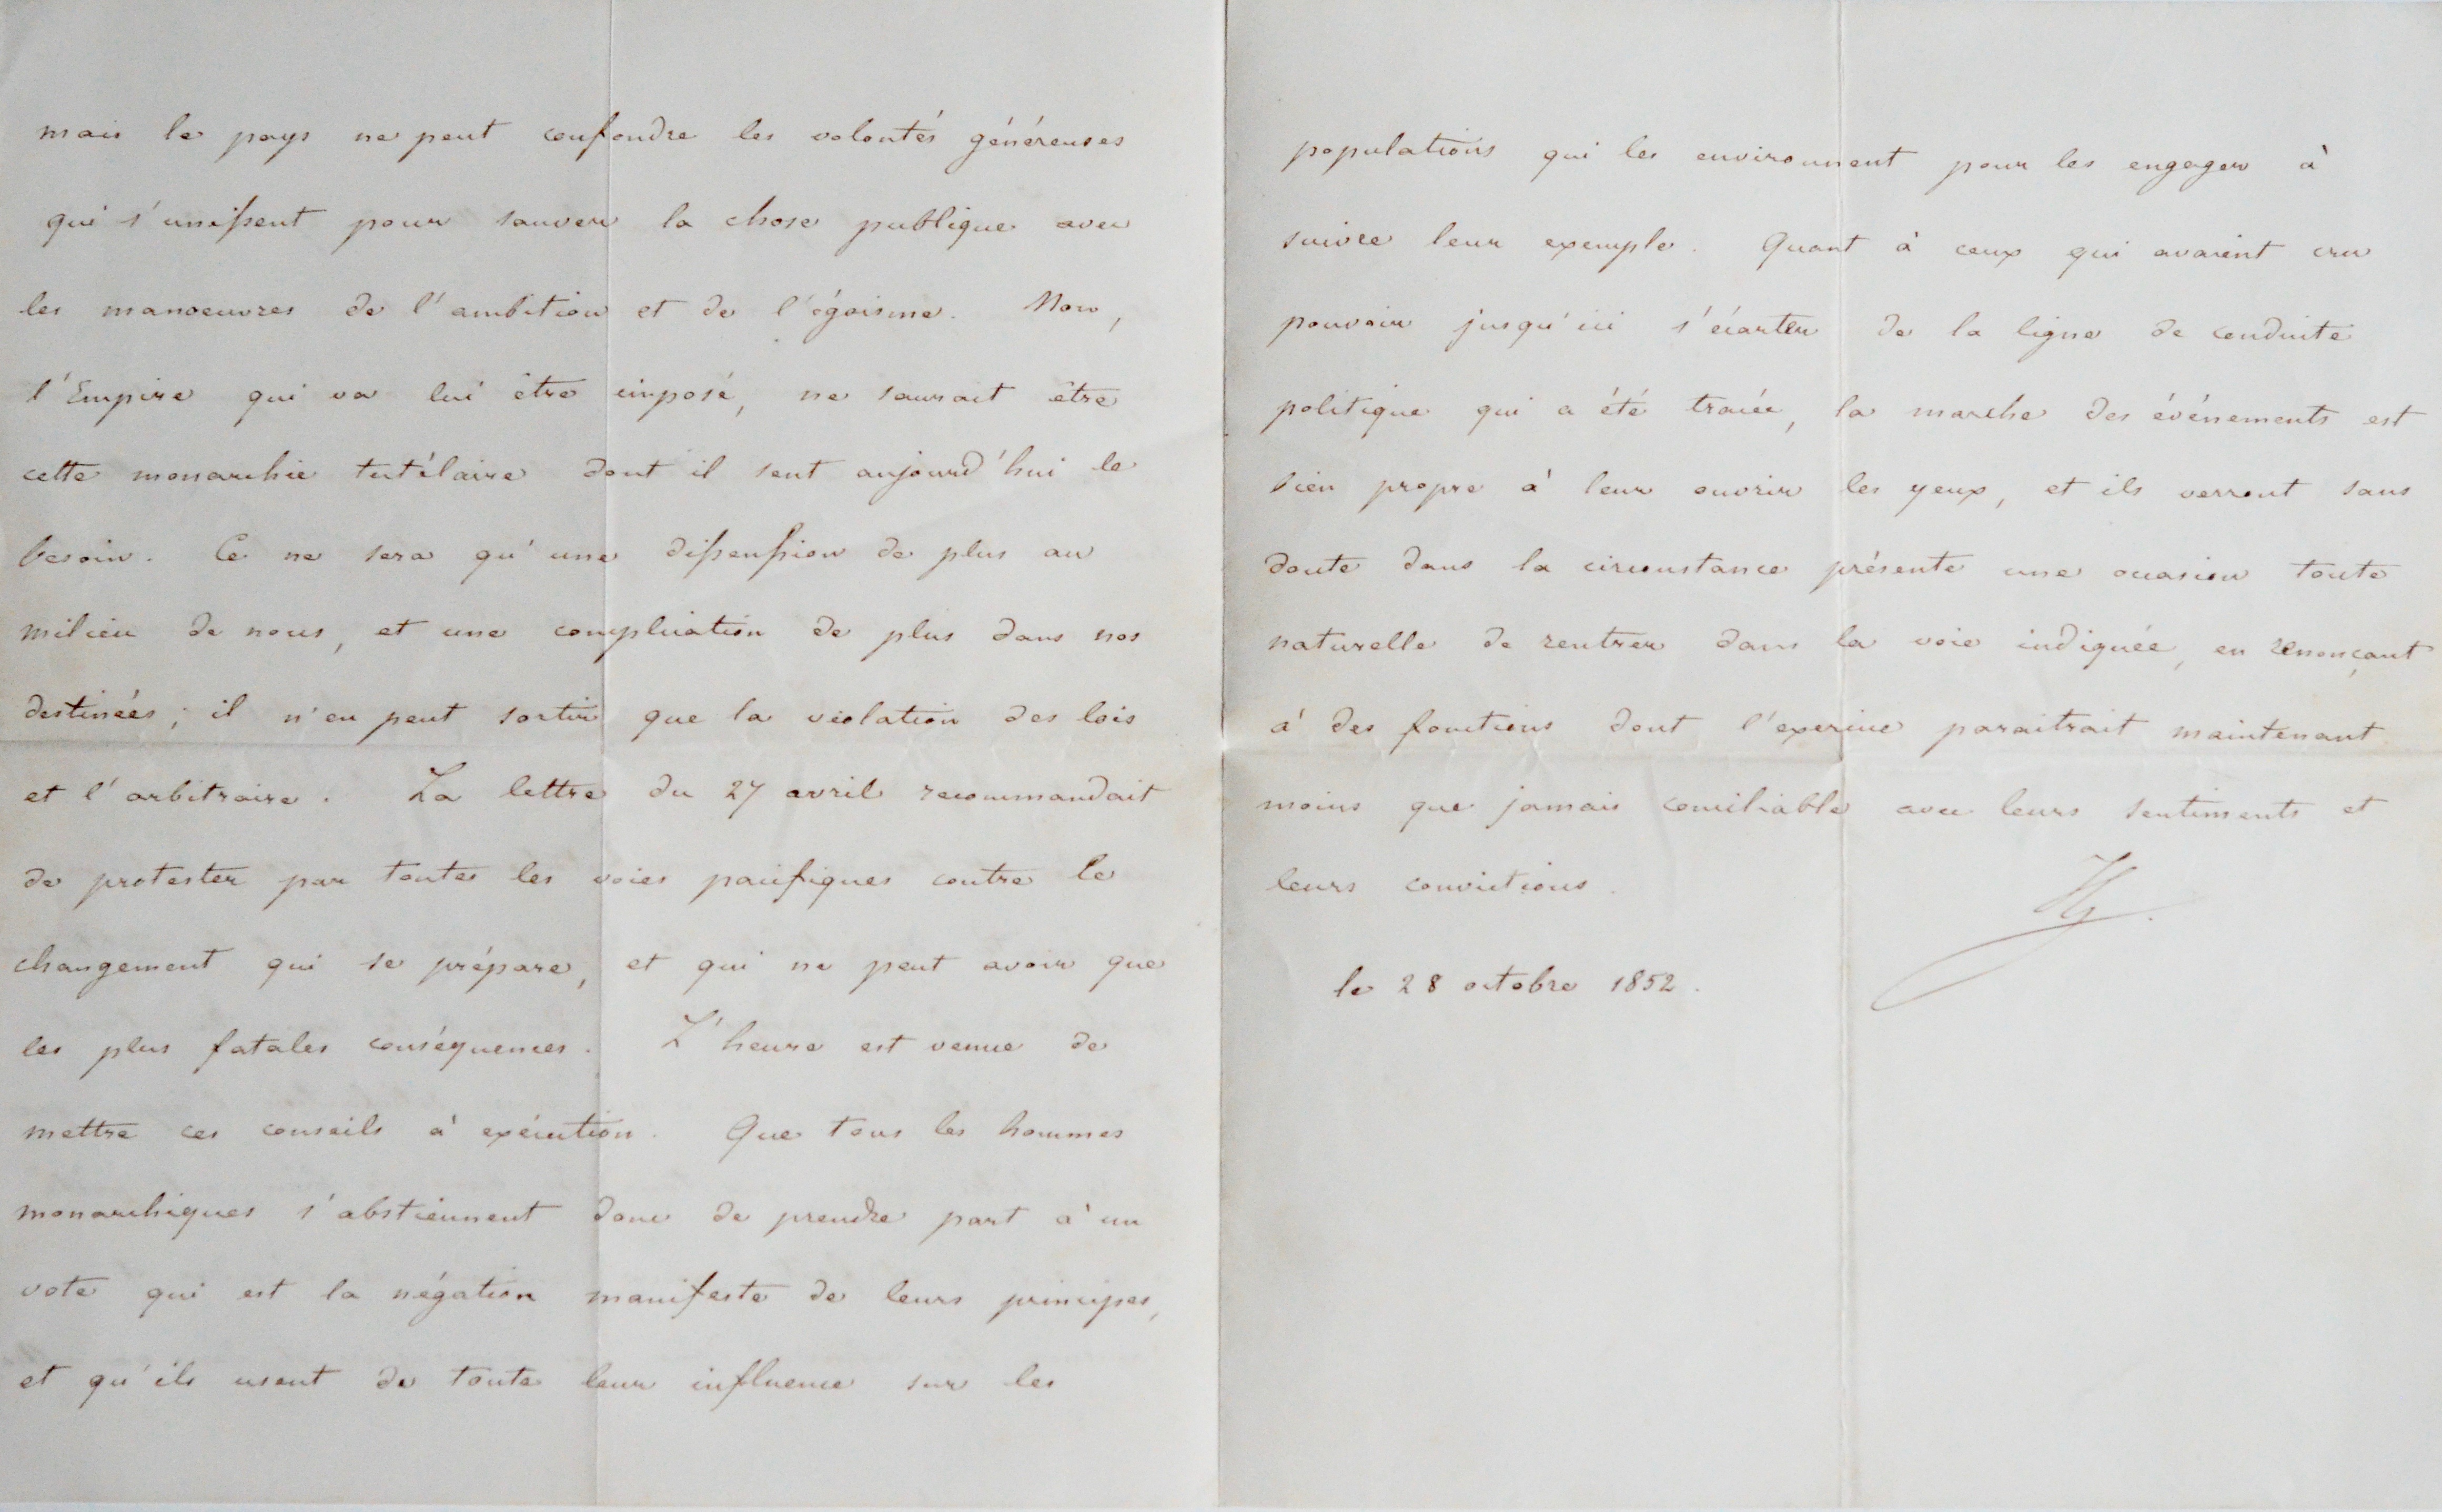 mais le pays ne peut confondre les volontés généreuses
qui s'unissent pour sauver la chose publique avec
les manoeuvres de l'ambition et de l'égoisme. Non,
l'Empire qui va lui être imposé, ne saurait être
cette monarchie tutélaire dont il sent aujourd'hui le
besoin. Ce ne sera qu'une dissension de plus au
milieu de nous, et une complication de plus dans nos
destinées; il n'en peut sortir que la violation des lois
et l'arbitraire. La lettre du 27 avril recommandait
de protester par toutes les voies pacifiques contre le
changement qui se prépare, et qui ne peut avoir que
les plus fatales conséquences. L'heure est venue de
mettre ces conseils à exécution. Que tous les hommes
monarchiques s'abstiennent donc de prendre part à un
vote qui est la négation manifeste de leurs principes,
et qu'ils usent de toute leur influence sur les
populations qui les environnent pour les engager à
suivre leur exemple. Quant à ceux qui avaient cru
pouvoir jusqu'ici s'écarter de la ligne de conduite
politique qui a été tracée, la marche des événements est
bien propre à leur ouvrir les yeux, et ils verront sans
doute dans la circonstance présente une occasion toute
naturelle de rentrer dans la voie indiquée, en renonçant
à des fonctions dont l'exercice paraitrait maintenant
moins que jamais conciliable avec leurs sentiments et
leurs convictions.
le 28 octobre 1852.